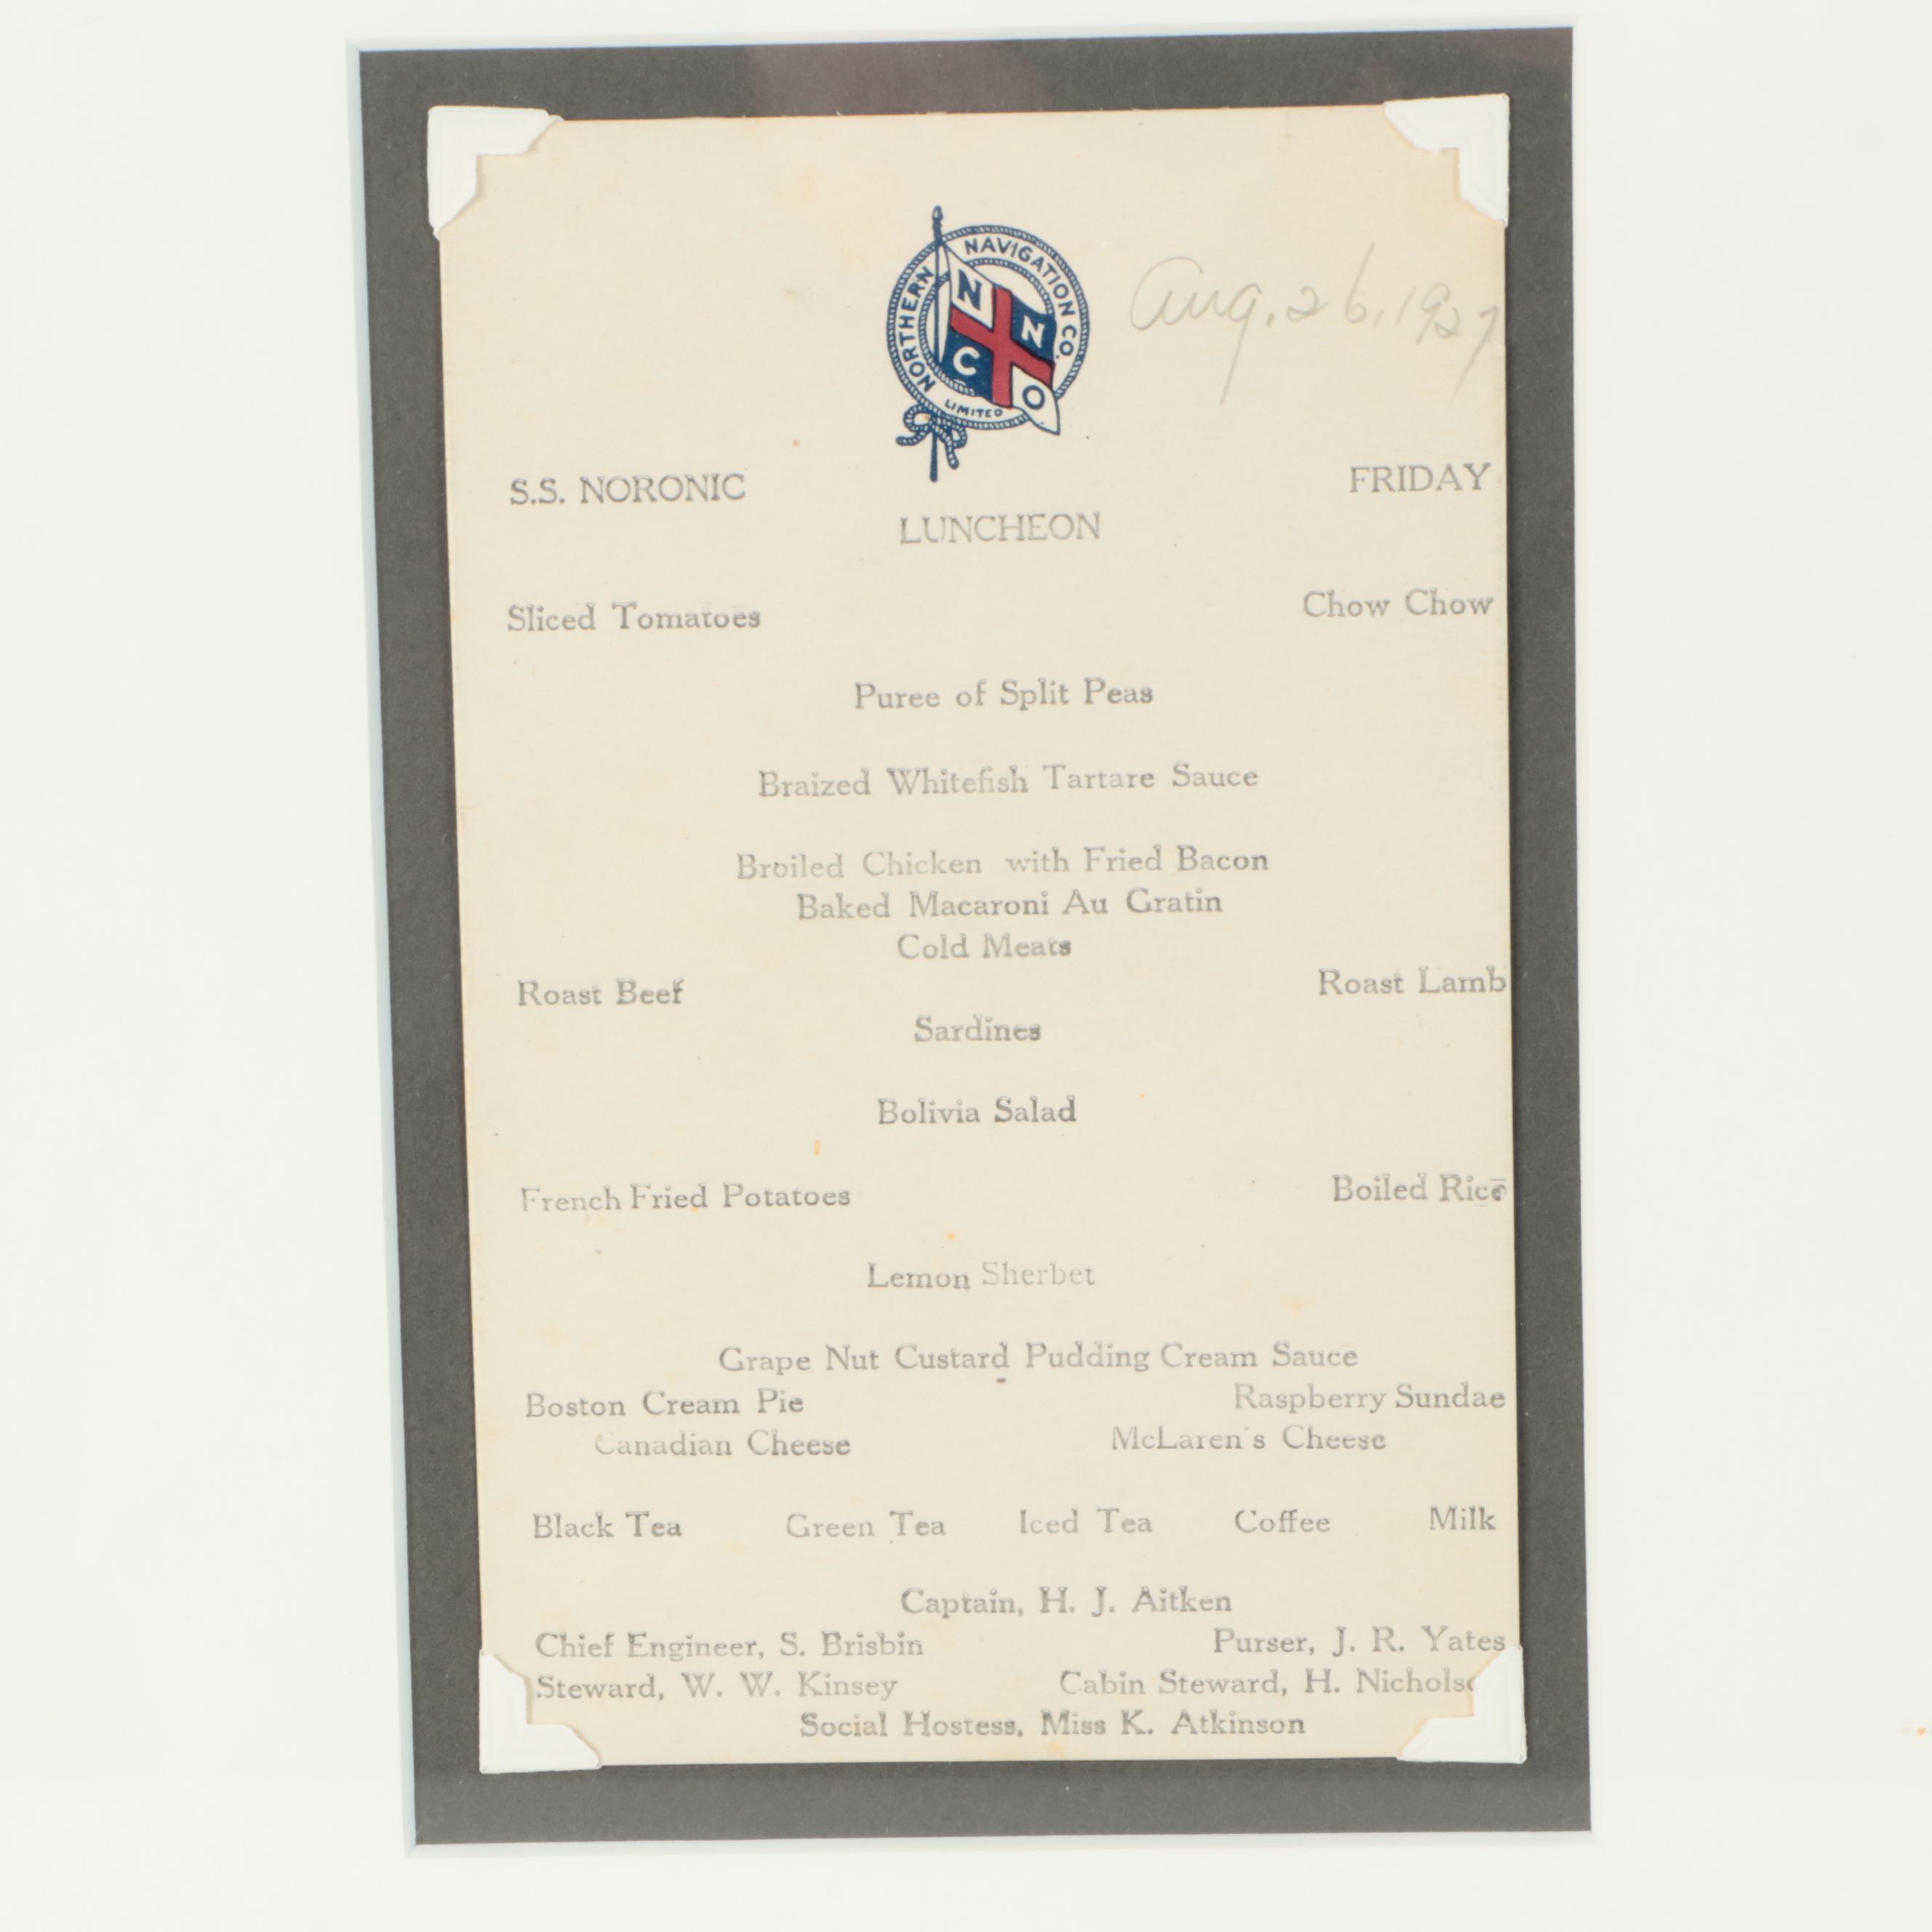 NORTHERN NAVIGATION CO.
LIMITED
N N
C O
Aug. 26, 1927
S.S. NORONIC FRIDAY
LUNCHEON
Sliced Tomatoes Chow Chow
Puree of Split Peas
Braized Whitefish Tartare Sauce
Broiled Chicken with Fried Bacon
Baked Macaroni Au Gratin
Cold Meats
Roast Beef Roast Lamb
Sardines
Bolivia Salad
French Fried Potatoes Boiled Rice
Lemon Sherbet
Grape Nut Custard Pudding Cream Sauce
Boston Cream Pie Raspberry Sundae
Canadian Cheese McLaren's Cheese
Black Tea Green Tea Iced Tea Coffee Milk
Captain, H. J. Aitken
Chief Engineer, S. Brisbin Purser, J. R. Yates
Steward, W. W. Kinsey Cabin Steward, H.
Social Hostess, Miss K. Atkinson